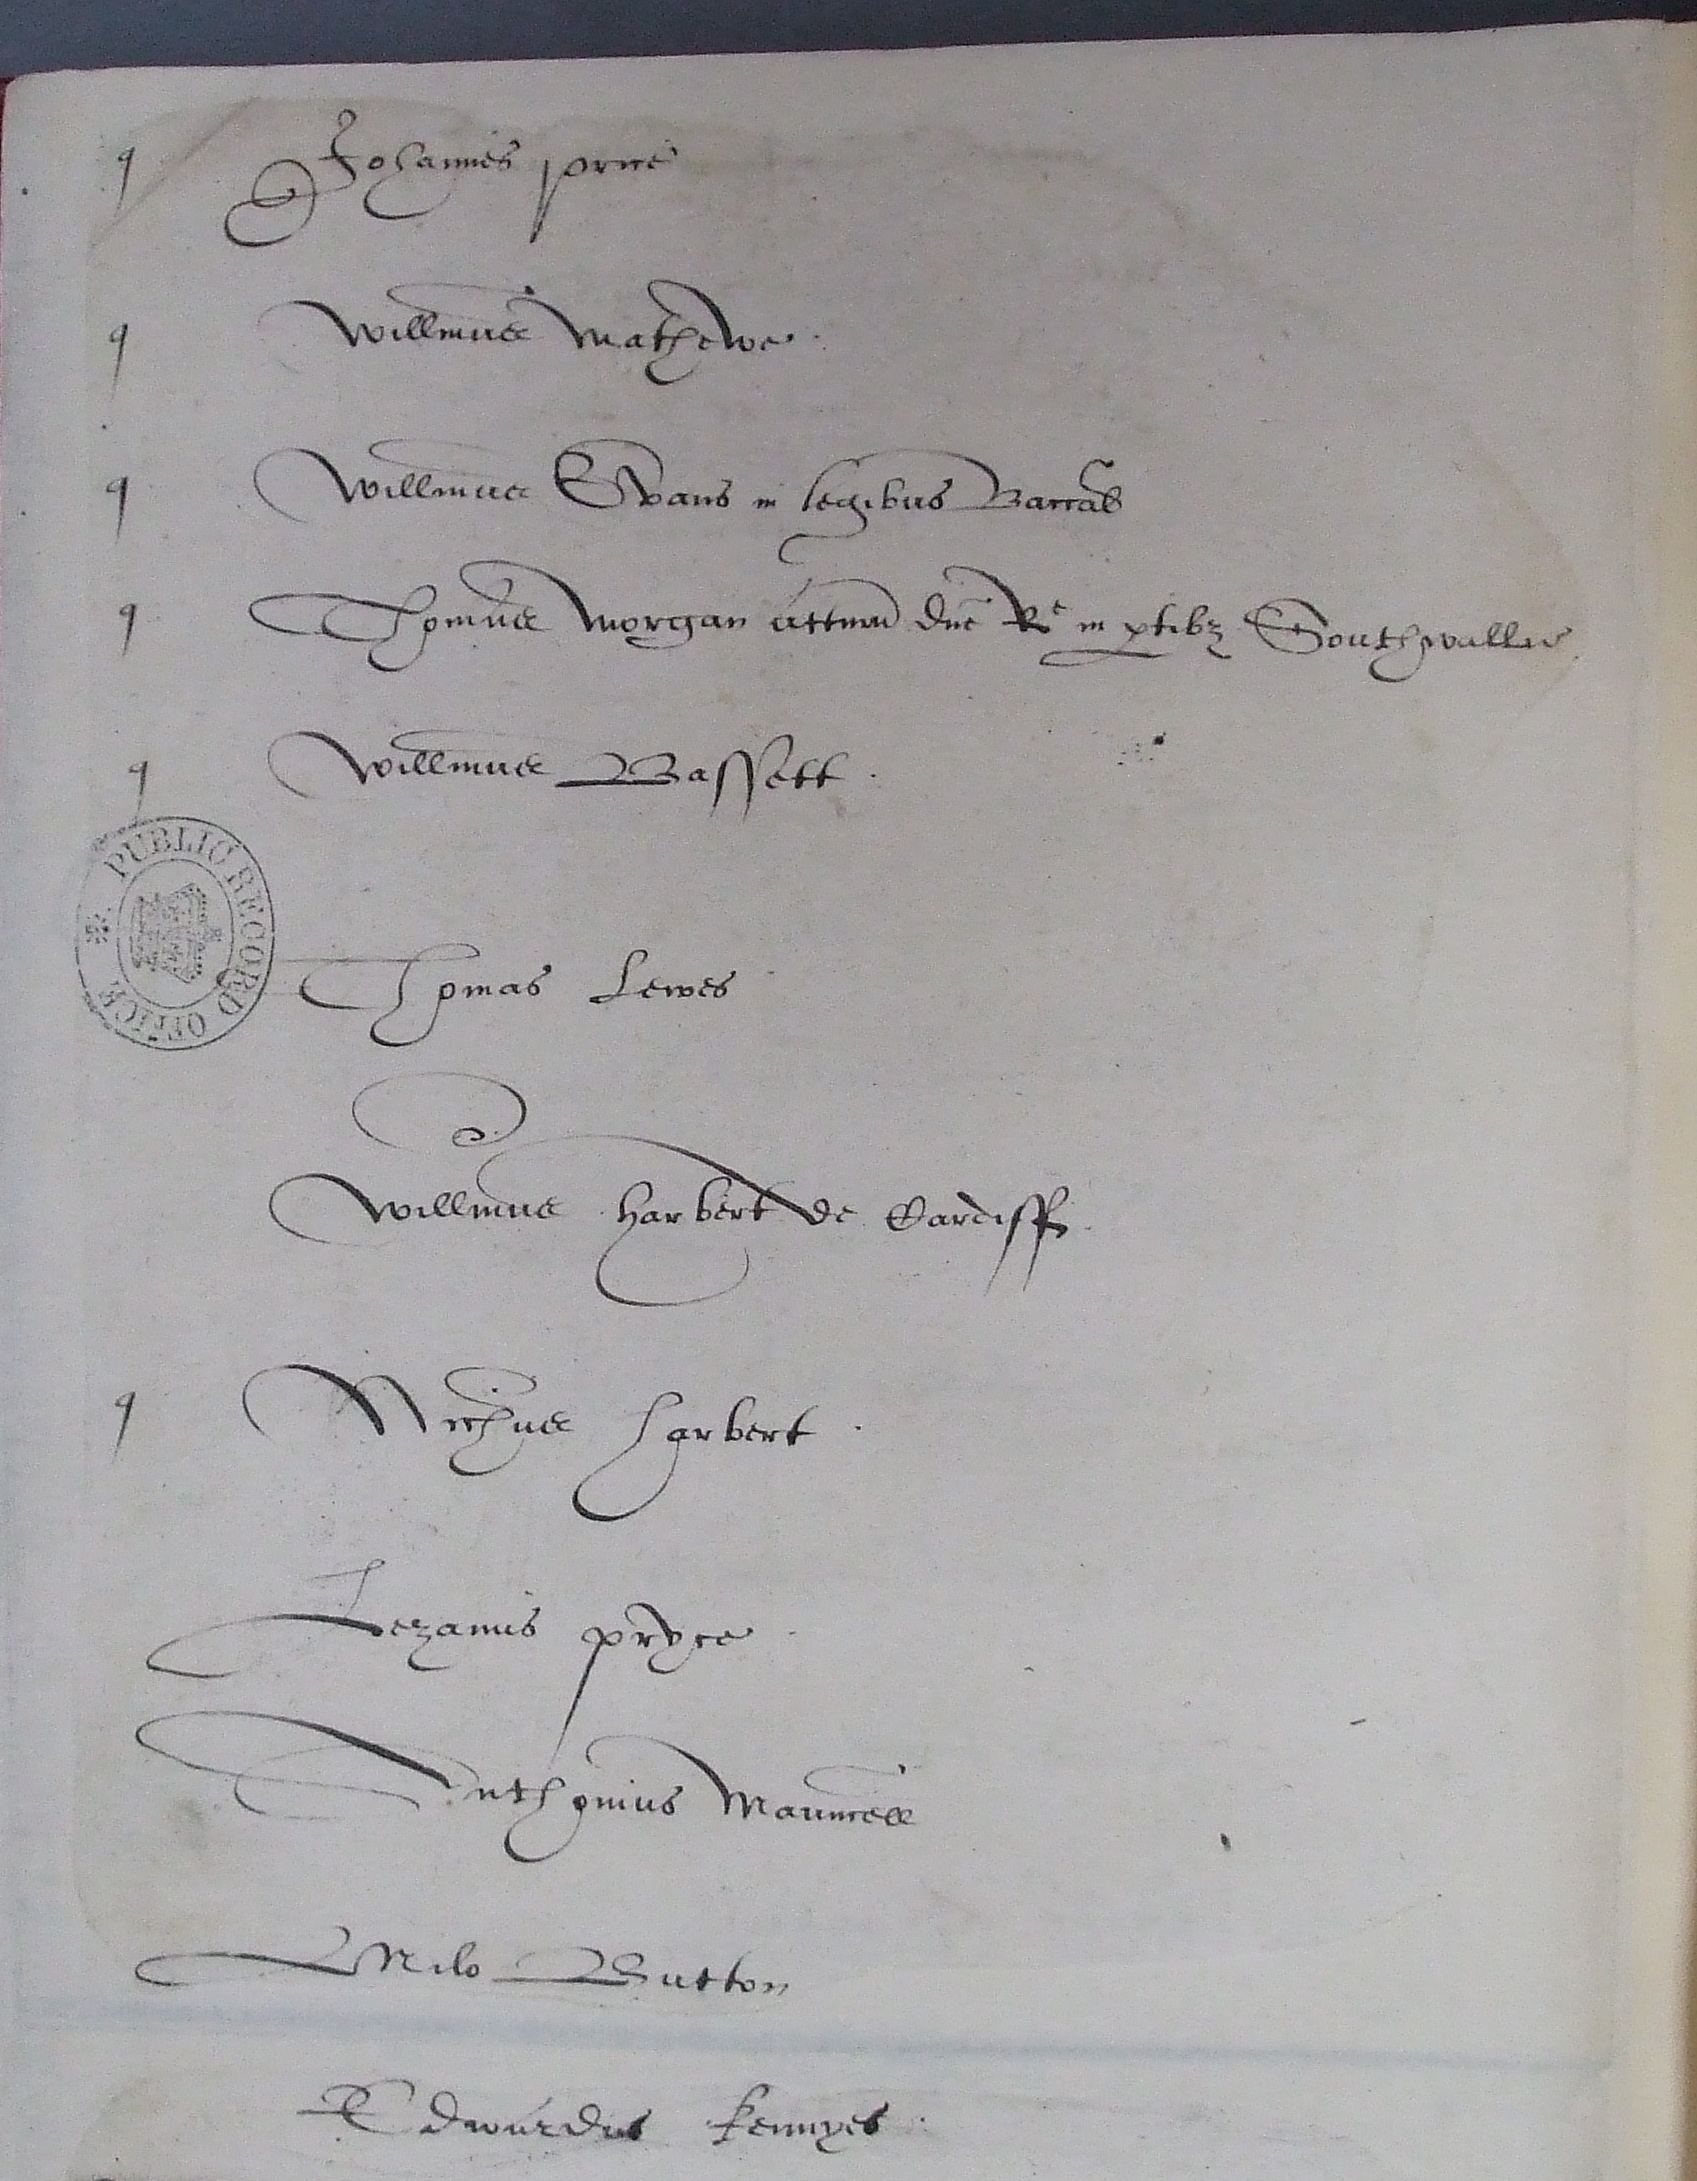 q Johannes price
q Willmus Mathewe
q Willmus Evans in legibus Baccal
q Thomas Morgan attorn dne Re in ptibz Southwallie
q Willmus Bassett
PUBLIC RECORD OFFICE
Thomas Lewes
Willmus Harbert de Cardiff
q Nichus Harbert
Lezanus pryce
Anthonius Mauncell
Milo Button
Edwardus Kemyes